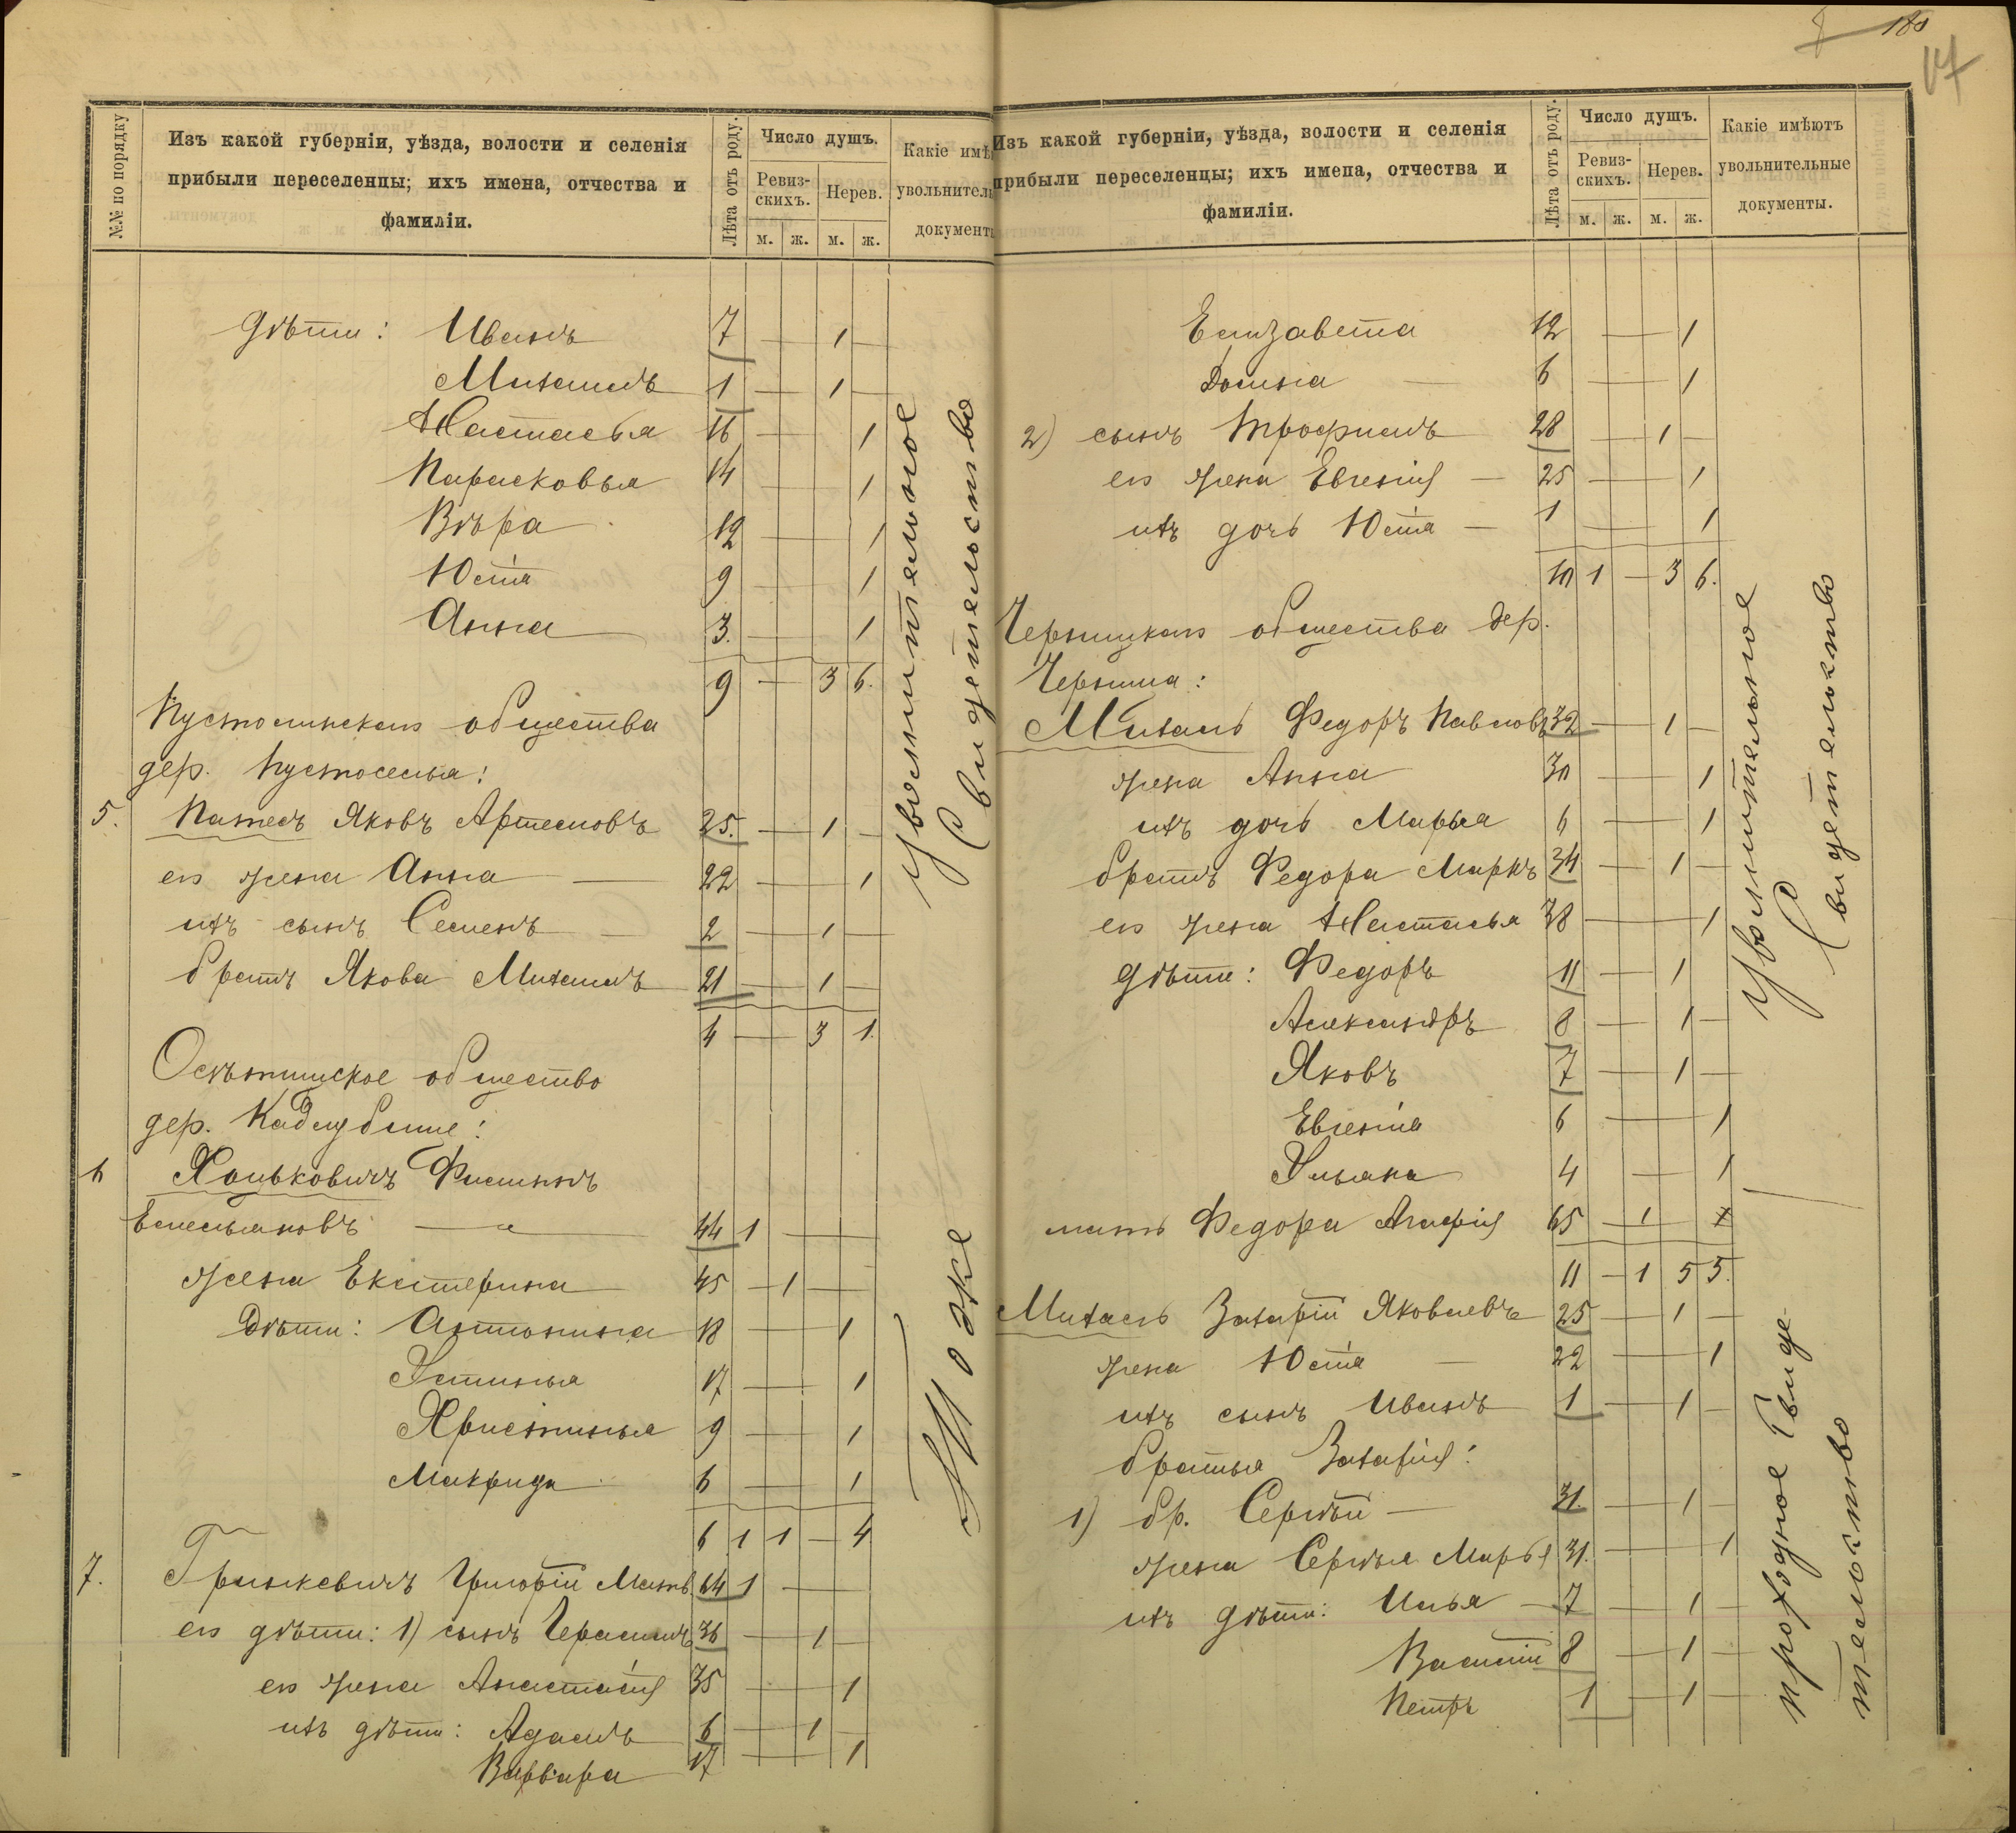 №№ по порядку
Изъ какой губерніи, уѣзда, волости и селенія
прибыли переселенцы; ихъ имена, отчества и
фамиліи.
Лѣта отъ роду.
Число душъ.
Ревиз-
скихъ.
Нерев.
м. ж. м. ж.
Какіе имѣ
увольнитель
документы
Дѣти: Иванъ 7 — 1 —
Михаилъ 1 — 1 —
Настасья 16 — 1
Парасковья 14 — 1
Вѣра 12 — 1
Юстія 9 — 1
Анна 3. — 1
9 — 3 6.
Увольнительное
Свидетельство
общества
дер. Пустоселья:
5. Яковъ Артемовъ 25. — 1 —
его жена Анна — 22 — 1
ихъ сынъ Семенъ — 2 — 1 —
братъ Якова Михаилъ 21 — 1 —
4 — 3 1.
общество
дер. Кадлубище:
6 Хоньковичъ Филимонъ
Емельяновъ — 44 1 —
жена Екатерина 45 — 1 —
Дѣти: Антонина 18 — 1
Устинья 17 — 1
Христинья 9 — 1
Макрида 6 — 1
6 1 1 — 4
То же
7. Гринкевичъ Григорій Матв 64 1 —
его дѣти: 1) сынъ Герасимъ 36 — 1 —
его жена Анастасія 35 — 1
ихъ дѣти: Адамъ 6 — 1 —
Варвара 17 — 1
8 180
17
Изъ какой губерніи, уѣзда, волости и селенія
прибыли переселенцы; ихъ имена, отчества и
фамиліи.
Лѣта отъ роду.
Число душъ.
Ревиз-
скихъ.
Нерев.
м. ж. м. ж.
Какіе имѣютъ
увольнительные
документы.
Елизавета 12 — 1
Домна — 6 — 1
2) сынъ Трофимъ 28 — 1 —
его жена Евгенія — 25 — 1
ихъ дочь Юстія — 1 — 1
10 1 — 3 6.
общества дер.
Михаль Федоръ Павловъ 32 — 1 —
жена Анна 30 — 1
ихъ дочь Марья 6 — 1
братъ Федора Маркъ 34 — 1 —
его жена Настасья 38 — 1
дѣти: Федоръ 11 — 1
Александръ 8 — 1 —
Яковъ 7 — 1 —
Евгенія 6 — 1
Ульяна 4 — 1
мать Федора Агафія 65 — 1
11 — 1 5 5.
Увольнительное
Свидетельство
Михаль Захарій Яковлевъ 25 — 1 —
жена Юстія — 22 — 1
ихъ сынъ Иванъ 1 — 1 —
братья Захарія:
1) бр. Сергѣй — 31 — 1 —
жена Сергѣя Марья 31. — 1
ихъ дѣти: Илья — 7 — 1 —
Василій 8 — 1 —
Петръ 1 — 1 —
проходное свиде-
тельство